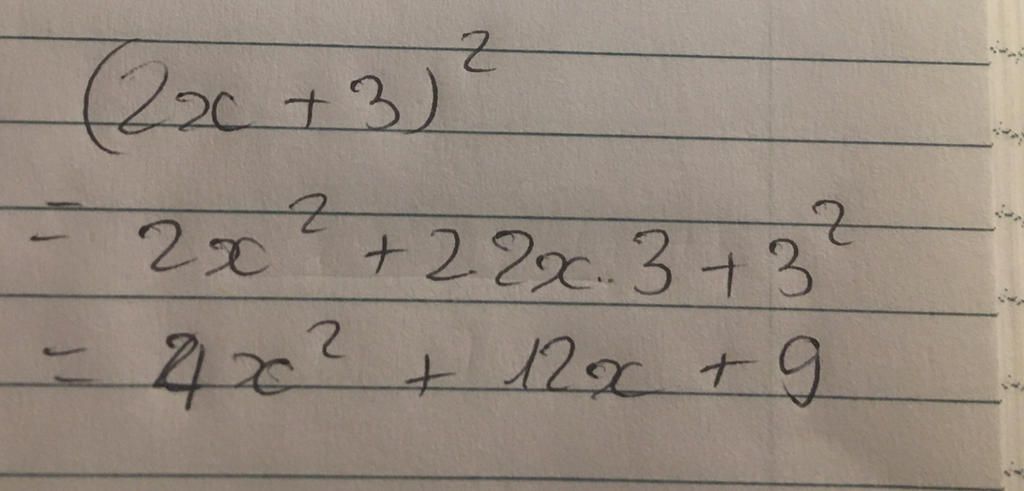 (2x + 3)²
= 2x² + 2.2x.3 + 3²
= 4x² + 12x + 9